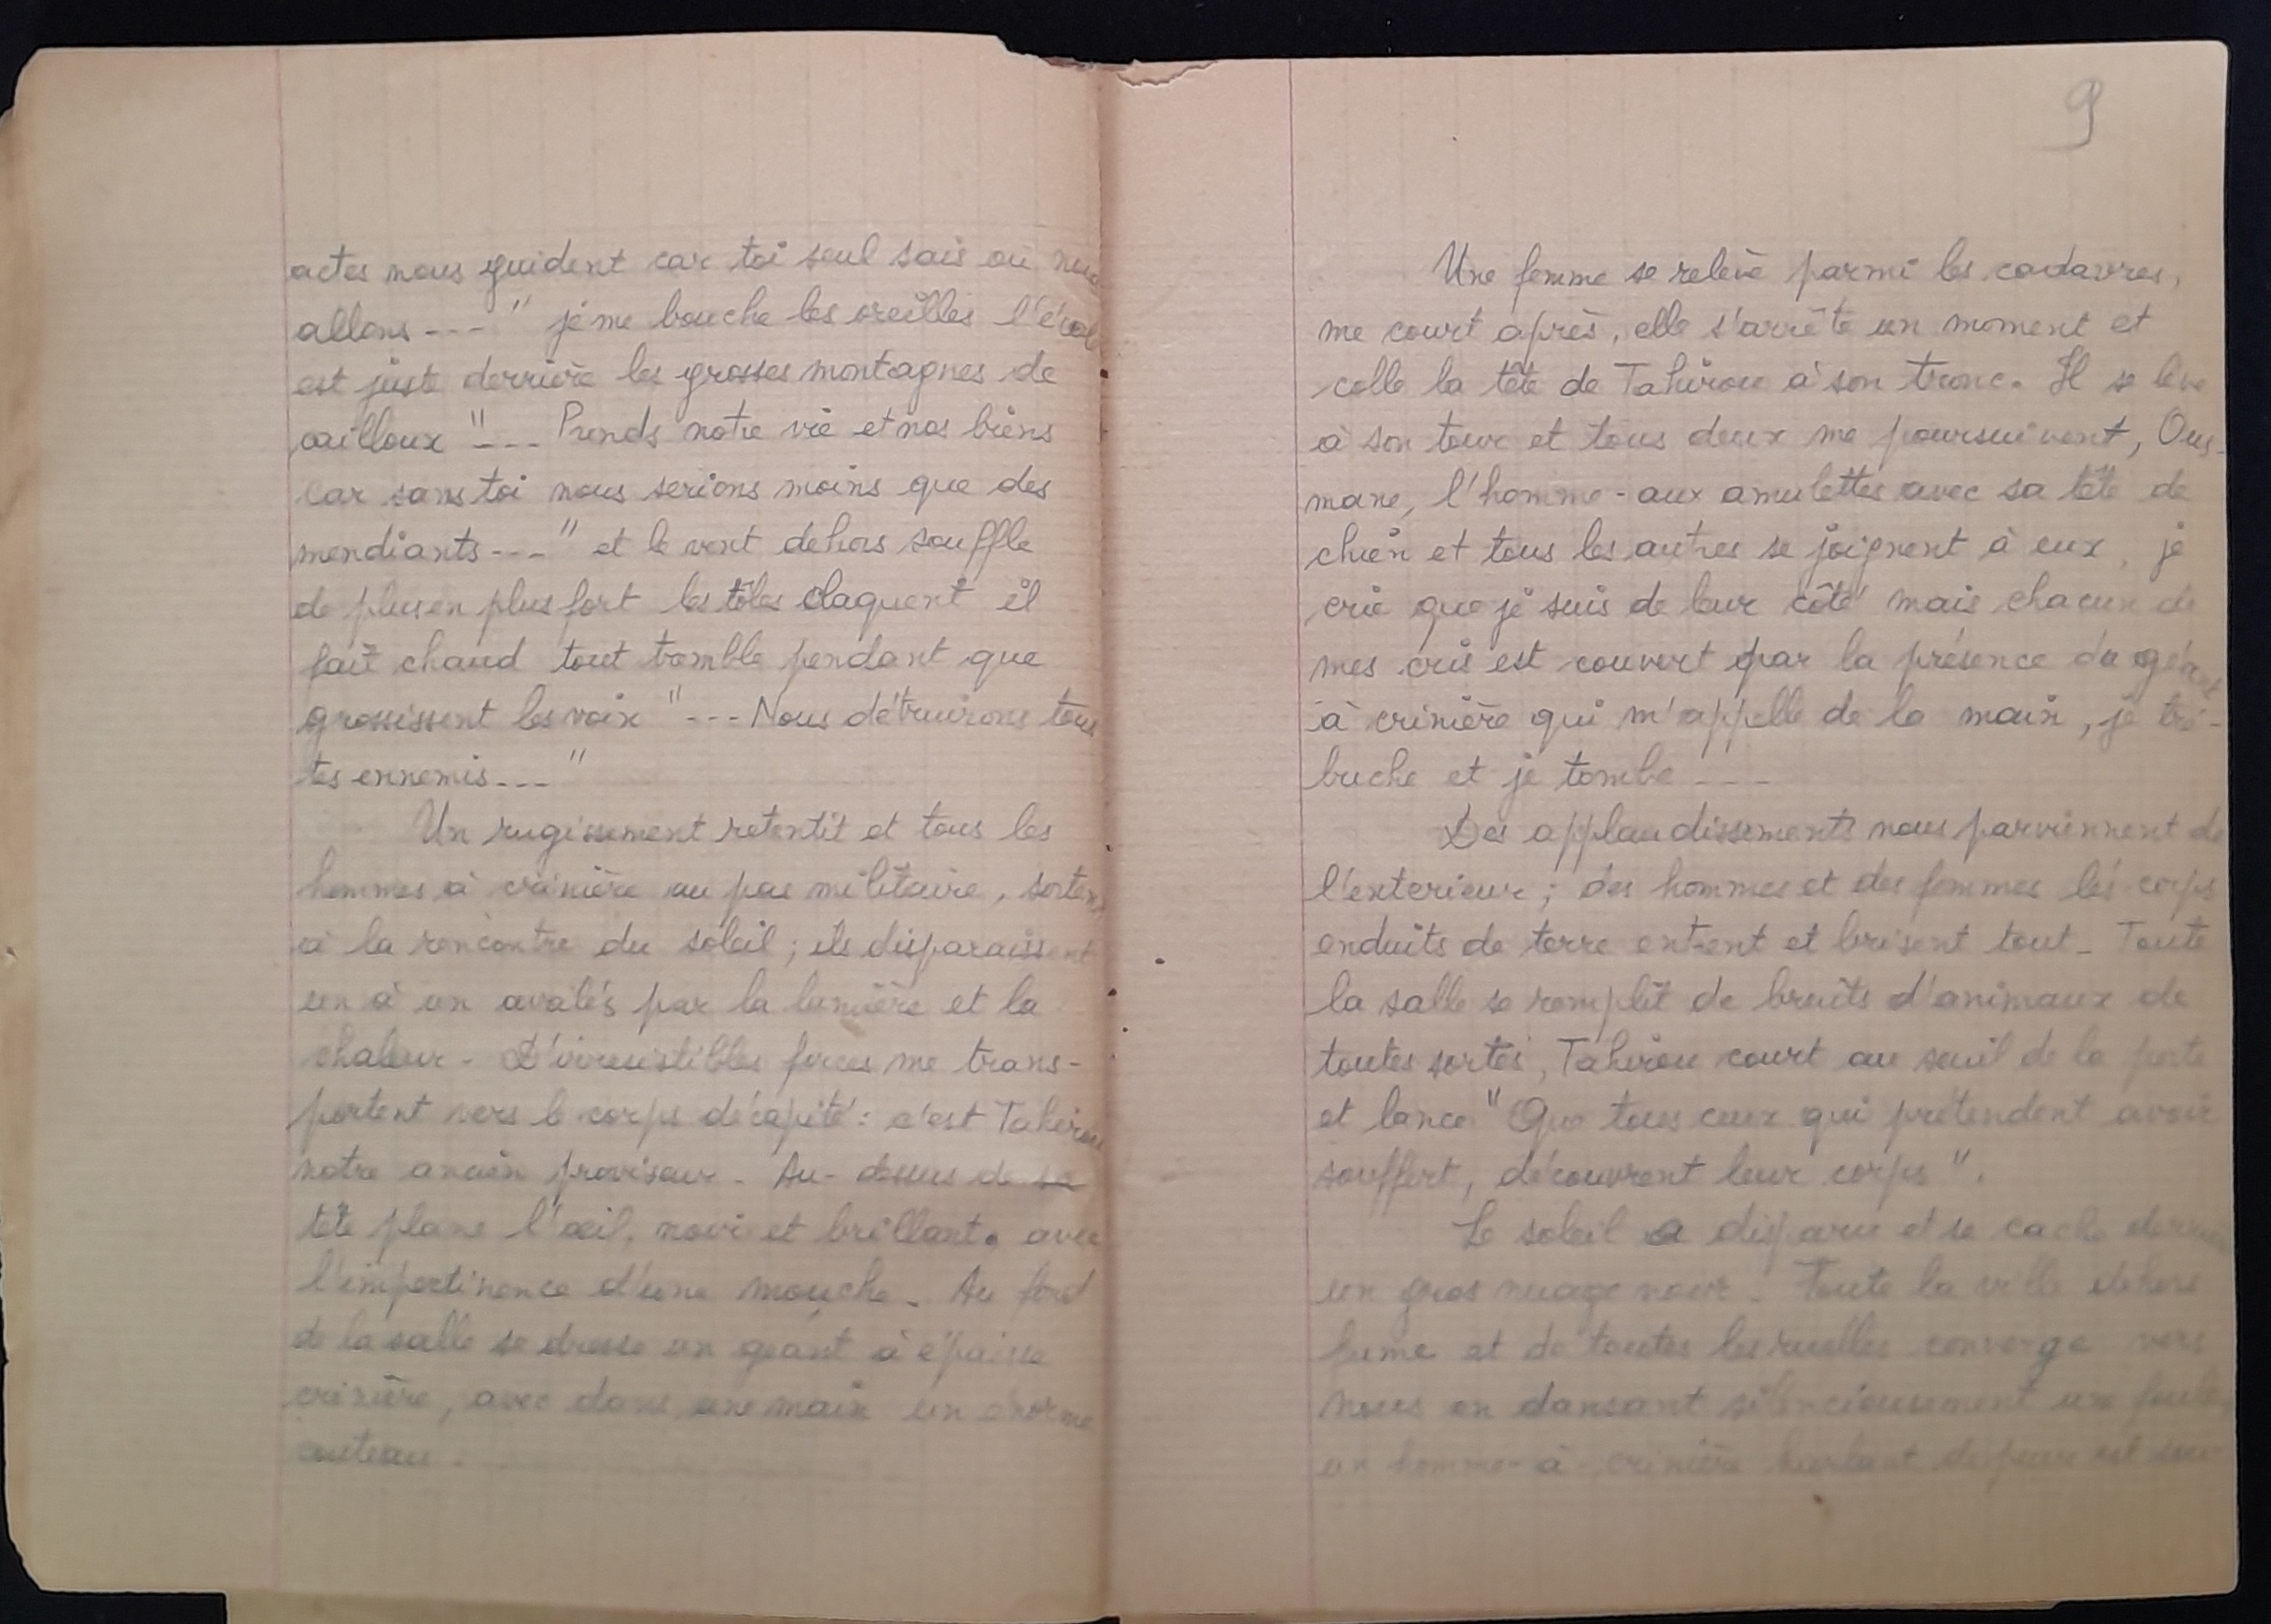 actes nous guident car toi seul sais où nous
allons --- " je me bouche les oreilles l'école
est juste derrière les grosses montagnes de
cailloux "--- Prends notre vie et nos biens
car sans toi nous serions moins que des
mendiants---" et le vent dehors souffle
de plus en plus fort les tôles claquent il
fait chaud tout tremble pendant que
grossissent les voix "--- Nous détruirons tous
tes ennemis---"
Un rugissement retentit et tous les
hommes à crinière au pas militaire, sortent
à la rencontre du soleil ; ils disparaissent
un à un avalés par la lumière et la
chaleur - D'irresistibles forces me trans-
portent vers le corps décapité : c'est Tahirou
notre ancien proviseur - Au-dessus de sa
tête plane l'œil, noir et brillant. avec
l'impertinence d'une mouche - Au fond
de la salle se dresse un géant à épaisse
crinière, avec dans une main un énorme
couteau.
9
Une femme se relève parmi les cadavres,
me court après, elle s'arrête un moment et
colle la tête de Tahirou à son tronc. Il se lève
à son tour et tous deux me poursuivent, Ous-
mane, l'homme-aux amulettes avec sa tête de
chien et tous les autres se joignent à eux, je
crie que je suis de leur côté mais chacun de
mes cris est couvert par la présence du géant
à crinière qui m'appelle de la main, je tré-
buche et je tombe ---
Des applaudissements nous parviennent de
l'exterieur ; des hommes et des femmes les corps
enduits de terre entrent et brisent tout - Toute
la salle se remplit de bruits d'animaux de
toutes sortes, Tahirou court au seuil de la porte
et lance "Que tous ceux qui prétendent avoir
souffert, découvrent leur corps".
Le soleil a disparu et se cache derrière
un gros nuage noir. Toute la ville dehors
fume et de toutes les ruelles converge vers
nous en dansant silencieusement une foule,
un homme-à-crinière hurlant de peur est